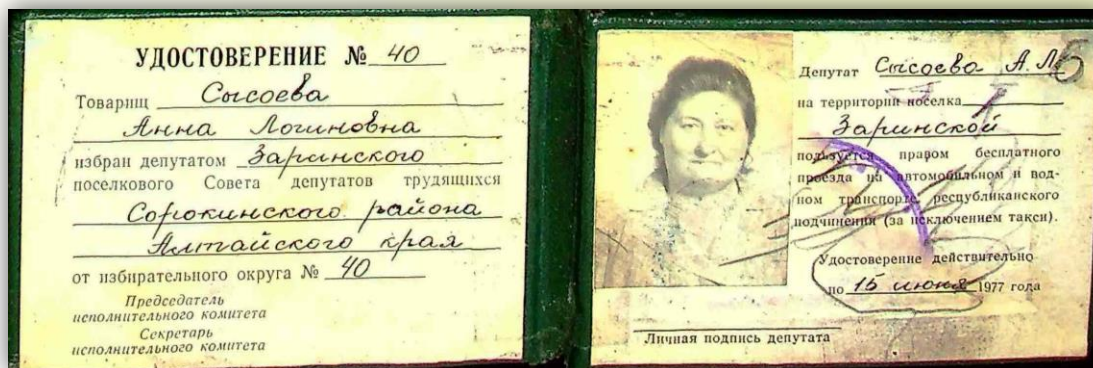 УДОСТОВЕРЕНИЕ № 40
Товарищ Сысоева
Анна Логиновна
избран депутатом Заринского
поселкового Совета депутатов трудящихся
Сорокинского района
Алтайского края
от избирательного округа № 40
Председатель
исполнительного комитета
Секретарь
исполнительного комитета
Депутат Сысоева А. Л.
на территории поселка
Заринской
пользуется правом бесплатного
проезда на автомобильном и вод-
ном транспорте республиканского
подчинения (за исключением такси).
Удостоверение действительно
по 15 июня 1977 года
Личная подпись депутата